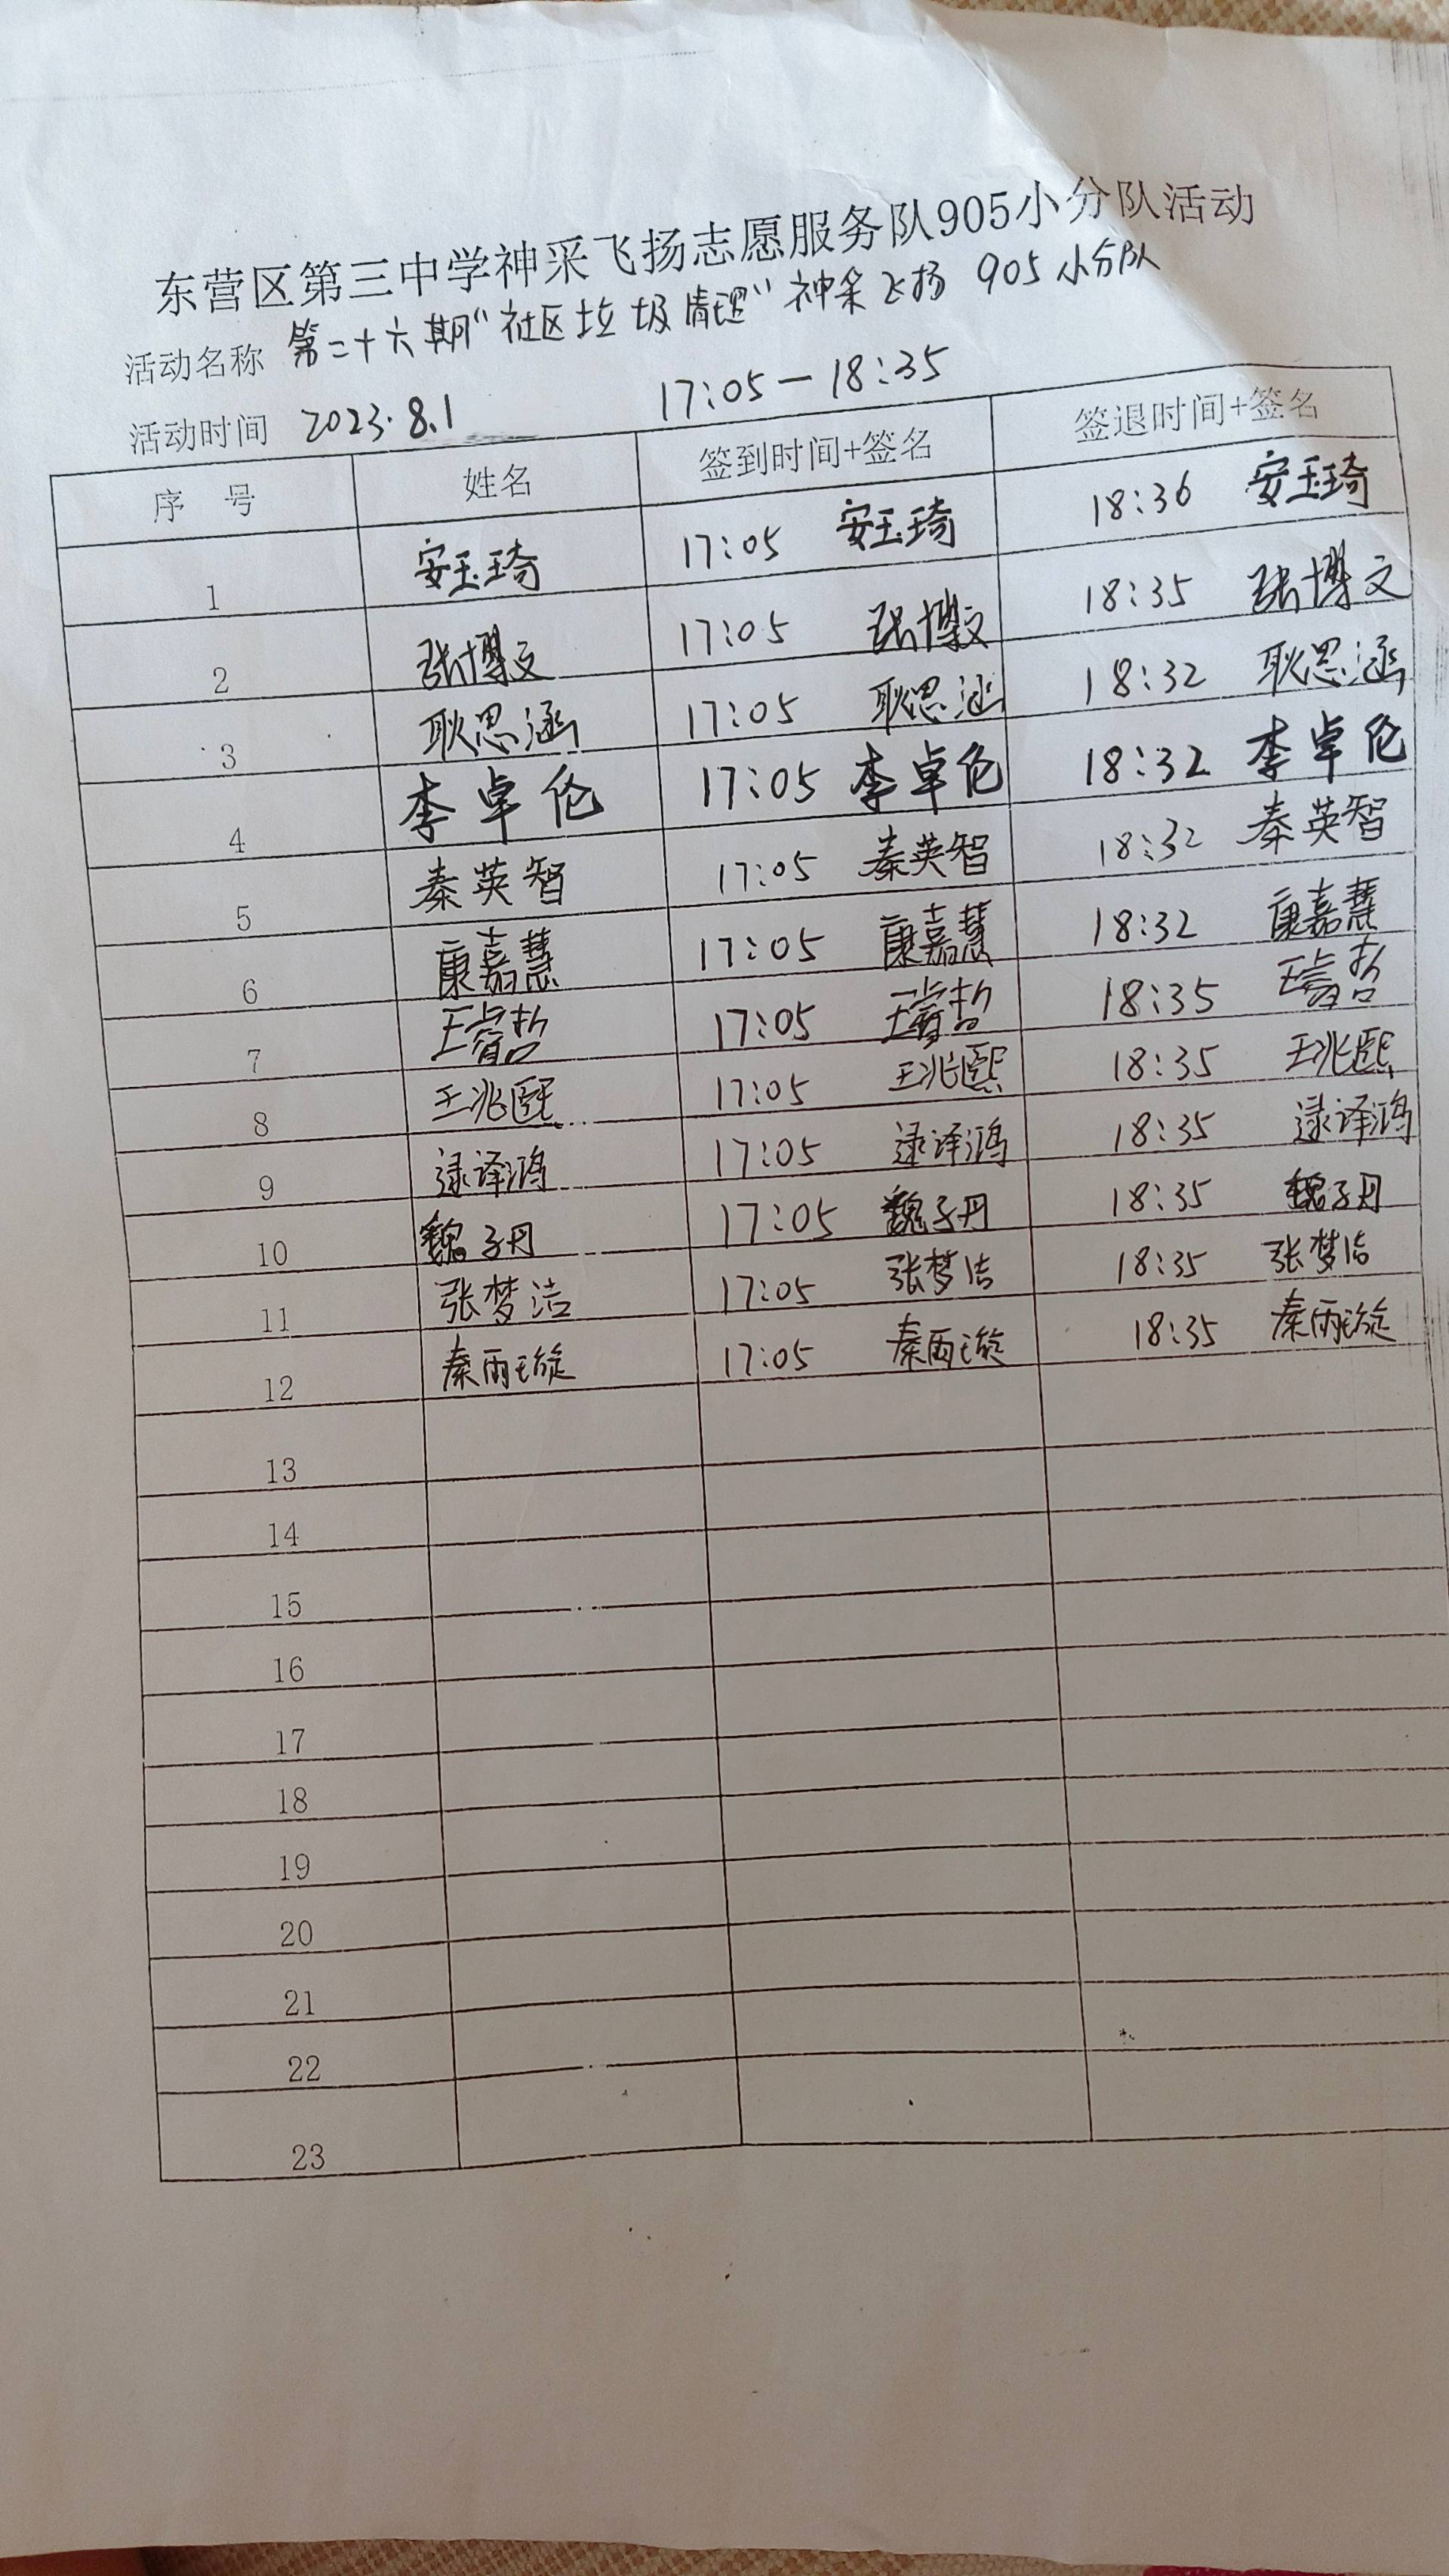 东营区第三中学神采飞扬志愿服务队905小分队活动
活动名称 第二十六期“社区垃圾清理”神采飞扬 905小分队
活动时间 2023.8.1 17:05—18:35
序 号 姓名 签到时间+签名 签退时间+签名
1 安玉琦 17:05 安玉琦 18:36 安玉琦
2 张博文 17:05 张博文 18:35 张博文
3 耿思涵 17:05 耿思涵 18:32 耿思涵
4 李卓伦 17:05 李卓伦 18:32 李卓伦
5 秦英智 17:05 秦英智 18:32 秦英智
6 康嘉慧 17:05 康嘉慧 18:32 康嘉慧
7 王睿哲 17:05 王睿哲 18:35 王睿哲
8 王兆熙 17:05 王兆熙 18:35 王兆熙
9 逯译鸿 17:05 逯译鸿 18:35 逯译鸿
10 魏子丹 17:05 魏子丹 18:35 魏子丹
11 张梦洁 17:05 张梦洁 18:35 张梦洁
12 秦雨璇 17:05 秦雨璇 18:35 秦雨璇
13
14
15
16
17
18
19
20
21
22
23